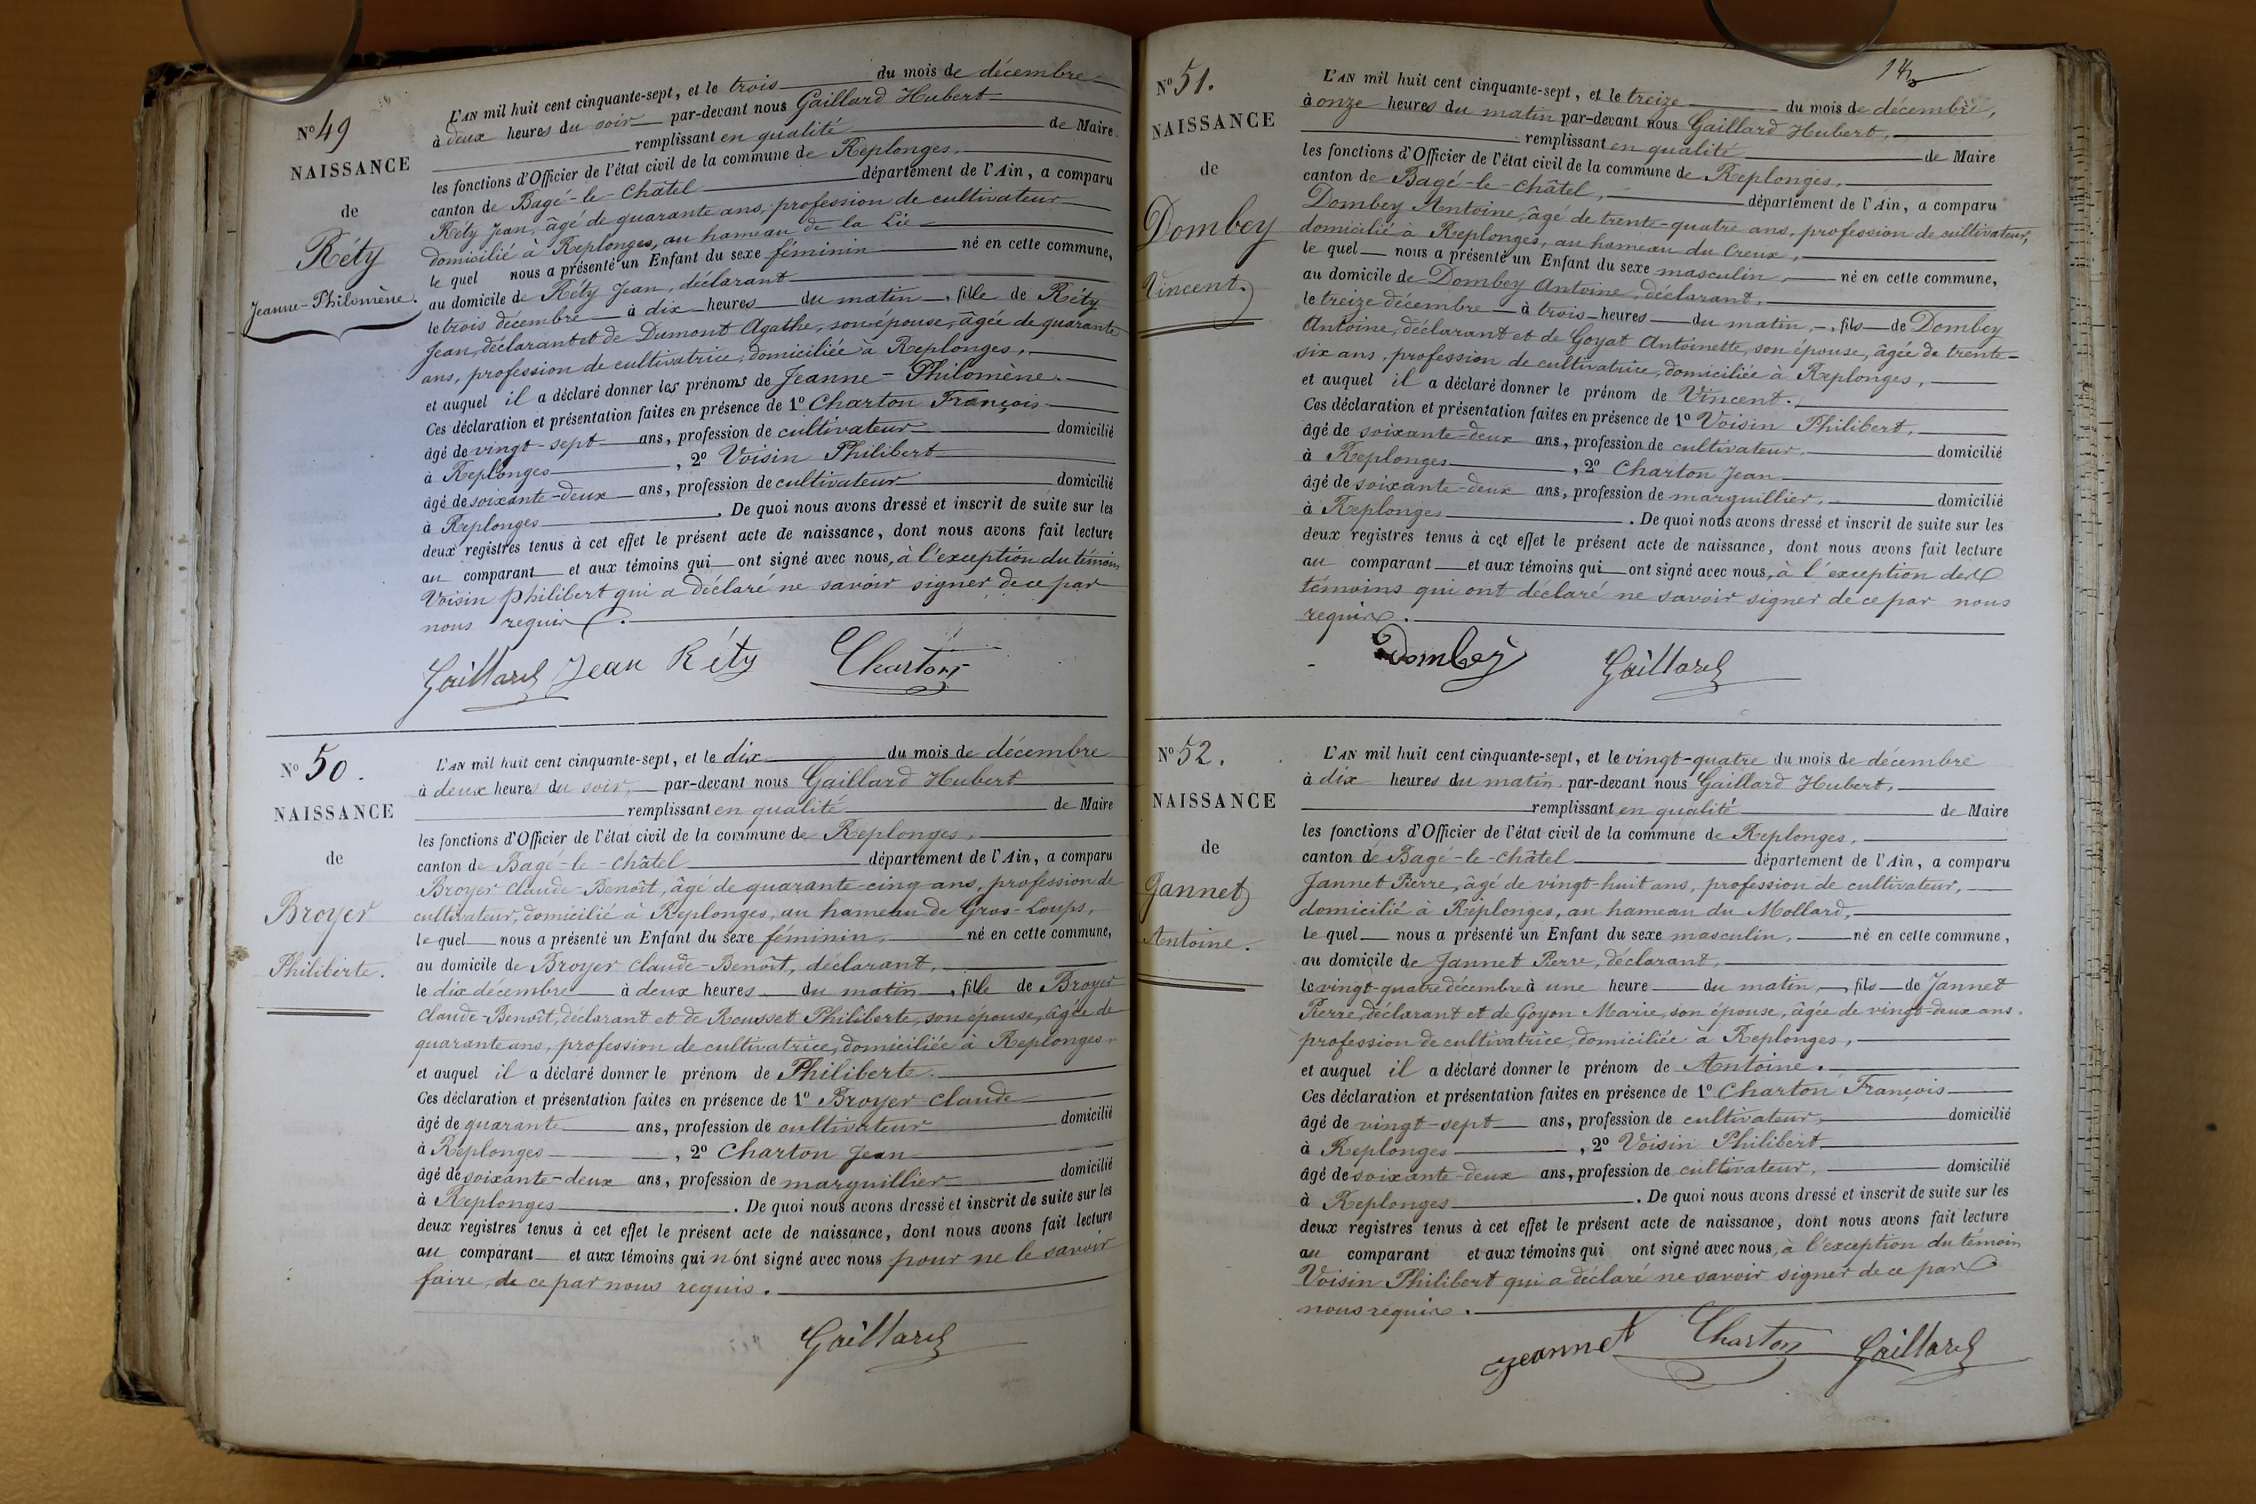 N° 49
NAISSANCE
de
Réty
Jeanne-Philomène.
L'AN mil huit cent cinquante-sept, et le trois du mois de décembre
à deux heures du soir par-devant nous Gaillard Hubert
remplissant en qualité de Maire
les fonctions d'Officier de l'état civil de la commune de Replonges,
canton de Bagé-le-Châtel département de l'Ain, a comparu
Réty Jean, âgé de quarante ans, profession de cultivateur
domicilié à Replonges, au hameau de la Lie
le quel nous a présenté un Enfant du sexe féminin né en cette commune,
au domicile de Réty Jean, déclarant
le trois décembre à dix heures du matin, fille de Réty
Jean, déclarant et de Dumont Agathe, son épouse, âgée de quarante
ans, profession de cultivatrice, domiciliée à Replonges,
et auquel il a déclaré donner les prénoms de Jeanne-Philomène.
Ces déclaration et présentation faites en présence de 1° Charton François
âgé de vingt-sept ans, profession de cultivateur domicilié
à Replonges, 2° Voisin Philibert
âgé de soixante-deux ans, profession de cultivateur domicilié
à Replonges. De quoi nous avons dressé et inscrit de suite sur les
deux registres tenus à cet effet le présent acte de naissance, dont nous avons fait lecture
au comparant et aux témoins qui ont signé avec nous, à l'exception du témoin
Voisin Philibert qui a déclaré ne savoir signer de ce par
nous requis.
Gaillard Jean Réty Charton
N° 50.
NAISSANCE
de
Broyer
Philiberte.
L'AN mil huit cent cinquante-sept, et le dix du mois de décembre
à deux heures du soir, par-devant nous Gaillard Hubert
remplissant en qualité de Maire
les fonctions d'Officier de l'état civil de la commune de Replonges,
canton de Bagé-le-Châtel département de l'Ain, a comparu
Broyer Claude-Benoît, âgé de quarante-cinq ans, profession de
cultivateur, domicilié à Replonges, au hameau de Gros-Loups,
le quel nous a présenté un Enfant du sexe féminin, né en cette commune,
au domicile de Broyer Claude-Benoît, déclarant,
le dix décembre à deux heures du matin, fille de Broyer
Claude-Benoît, déclarant et de Rousset Philiberte, son épouse, âgée de
quarante ans, profession de cultivatrice, domiciliée à Replonges,
et auquel il a déclaré donner le prénom de Philiberte.
Ces déclaration et présentation faites en présence de 1° Broyer Claude
âgé de quarante ans, profession de cultivateur domicilié
à Replonges, 2° Charton Jean
âgé de soixante-deux ans, profession de marguillier domicilié
à Replonges. De quoi nous avons dressé et inscrit de suite sur les
deux registres tenus à cet effet le présent acte de naissance, dont nous avons fait lecture
au comparant et aux témoins qui n'ont signé avec nous pour ne le savoir
faire, de ce par nous requis.
Gaillard
N° 51.
NAISSANCE
de
Dombey
Vincent.
L'AN mil huit cent cinquante-sept, et le treize du mois de décembre,
à onze heures du matin par-devant nous Gaillard Hubert,
remplissant en qualité de Maire
les fonctions d'Officier de l'état civil de la commune de Replonges,
canton de Bagé-le-Châtel, département de l'Ain, a comparu
Dombey Antoine, âgé de trente-quatre ans, profession de cultivateur,
domicilié à Replonges, au hameau du Creux,
le quel nous a présenté un Enfant du sexe masculin, né en cette commune,
au domicile de Dombey Antoine, déclarant,
le treize décembre à trois heures du matin, fils de Dombey
Antoine, déclarant et de Goyat Antoinette, son épouse, âgée de trente-
six ans, profession de cultivatrice, domiciliée à Replonges,
et auquel il a déclaré donner le prénom de Vincent.
Ces déclaration et présentation faites en présence de 1° Voisin Philibert,
âgé de soixante-deux ans, profession de cultivateur, domicilié
à Replonges, 2° Charton Jean
âgé de soixante-deux ans, profession de marguillier, domicilié
à Replonges. De quoi nous avons dressé et inscrit de suite sur les
deux registres tenus à cet effet le présent acte de naissance, dont nous avons fait lecture
au comparant et aux témoins qui ont signé avec nous, à l'exception des
témoins qui ont déclaré ne savoir signer de ce par nous
requis.
Dombey Gaillard
N° 52.
NAISSANCE
de
Jannet
Antoine.
L'AN mil huit cent cinquante-sept, et le vingt-quatre du mois de décembre
à dix heures du matin par-devant nous Gaillard Hubert,
remplissant en qualité de Maire
les fonctions d'Officier de l'état civil de la commune de Replonges,
canton de Bagé-le-Châtel département de l'Ain, a comparu
Jannet Pierre, âgé de vingt-huit ans, profession de cultivateur,
domicilié à Replonges, au hameau du Mollard,
le quel nous a présenté un Enfant du sexe masculin, né en cette commune,
au domicile de Jannet Pierre, déclarant,
le vingt-quatre décembre à une heure du matin, fils de Jannet
Pierre, déclarant et de Goyon Marie, son épouse, âgée de vingt-deux ans,
profession de cultivatrice, domiciliée à Replonges,
et auquel il a déclaré donner le prénom de Antoine.
Ces déclaration et présentation faites en présence de 1° Charton François
âgé de vingt-sept ans, profession de cultivateur, domicilié
à Replonges, 2° Voisin Philibert
âgé de soixante-deux ans, profession de cultivateur, domicilié
à Replonges. De quoi nous avons dressé et inscrit de suite sur les
deux registres tenus à cet effet le présent acte de naissance, dont nous avons fait lecture
au comparant et aux témoins qui ont signé avec nous, à l'exception du témoin
Voisin Philibert qui a déclaré ne savoir signer de ce par
nous requis.
Jeannet Charton Gaillard